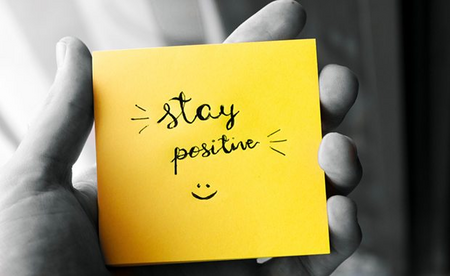 stay
positive